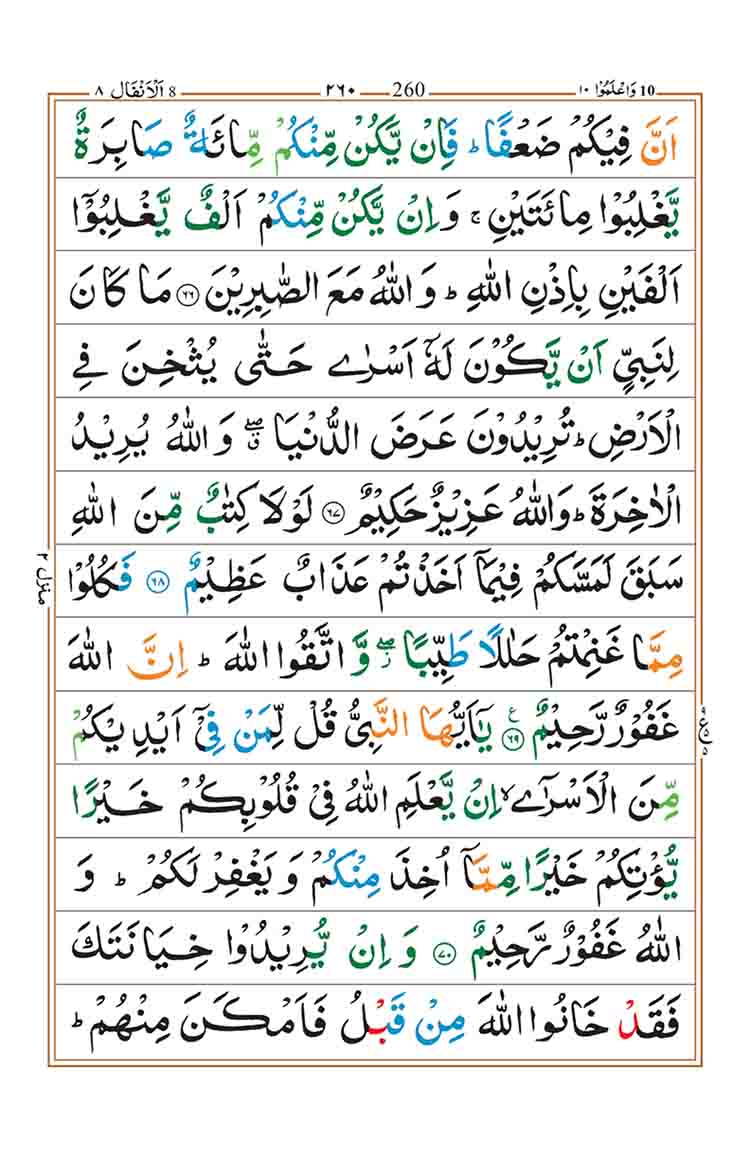 10 وَاعْلَمُوْٓا ١٠ 260 ٢٦٠ 8 اَلْاَنْفَال ٨
اَنَّ فِيْكُمْ ضَعْفًا ؕ فَاِنْ يَّكُنْ مِّنْكُمْ مِّائَةٌ صَابِرَةٌ
يَّغْلِبُوْا مِائَتَيْنِ ۚ وَاِنْ يَّكُنْ مِّنْكُمْ اَلْفٌ يَّغْلِبُوْٓا
اَلْفَيْنِ بِاِذْنِ اللّٰهِ ؕ وَاللّٰهُ مَعَ الصّٰبِرِيْنَ ۝۶۶ مَا كَانَ
لِنَبِيٍّ اَنْ يَّكُوْنَ لَهٗٓ اَسْرٰے حَتّٰى يُثْخِنَ فِے
الْاَرْضِ ؕ تُرِيْدُوْنَ عَرَضَ الدُّنْيَا ۖۗ وَاللّٰهُ يُرِيْدُ
الْاٰخِرَةَ ؕ وَاللّٰهُ عَزِيْزٌ حَكِيْمٌ ۝۶۷ لَوْلَا كِتٰبٌ مِّنَ اللّٰهِ
سَبَقَ لَمَسَّكُمْ فِيْمَآ اَخَذْتُمْ عَذَابٌ عَظِيْمٌ ۝۶۸ فَكُلُوْا
مِمَّا غَنِمْتُمْ حَلٰلًا طَيِّبًا ۖؗ وَّاتَّقُوا اللّٰهَ ؕ اِنَّ اللّٰهَ
غَفُوْرٌ رَّحِيْمٌ ۝۶۹ ع يٰٓاَيُّهَا النَّبِيُّ قُلْ لِّمَنْ فِيْٓ اَيْدِيْكُمْ
مِّنَ الْاَسْرٰٓے ۙ اِنْ يَّعْلَمِ اللّٰهُ فِيْ قُلُوْبِكُمْ خَيْرًا
يُّؤْتِكُمْ خَيْرًا مِّمَّآ اُخِذَ مِنْكُمْ وَيَغْفِرْ لَكُمْ ؕ وَ
اللّٰهُ غَفُوْرٌ رَّحِيْمٌ ۝۷۰ وَاِنْ يُّرِيْدُوْا خِيَانَتَكَ
فَقَدْ خَانُوا اللّٰهَ مِنْ قَبْلُ فَاَمْكَنَ مِنْهُمْ ؕ
منزل ۲